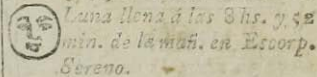 Luna llena á las 3 hs. y 52
min. de la mañ. en Escorp.
Sereno.